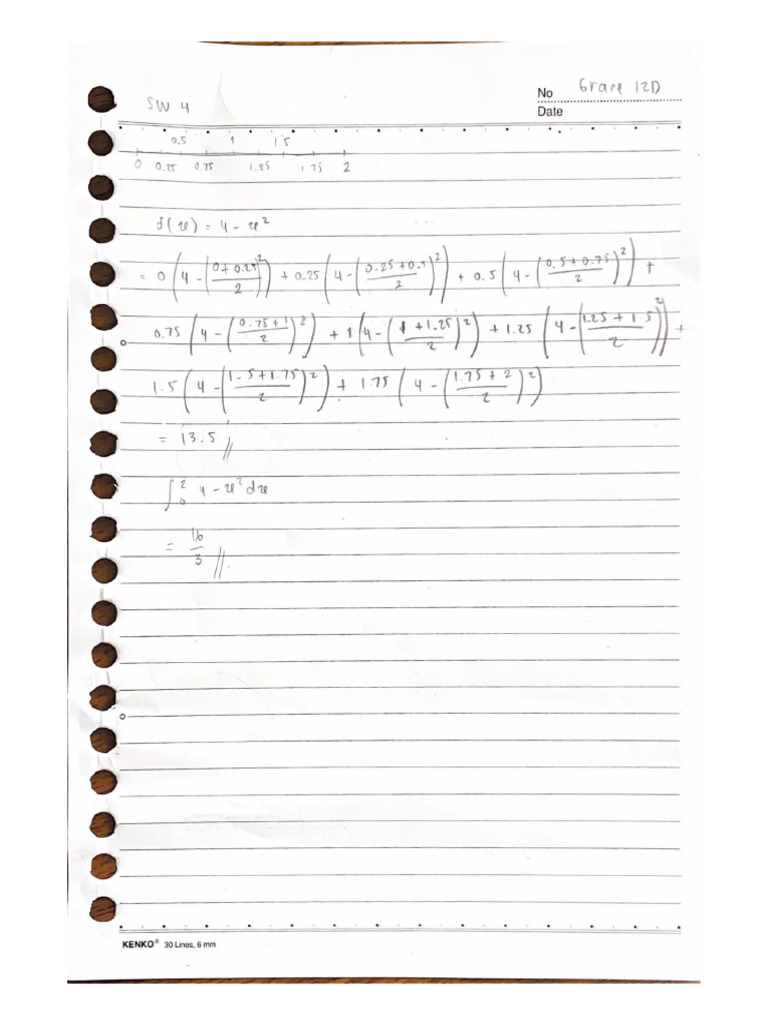 No Grace 12D
SW 4
Date
0.5 1 1.5
0 0.25 0.75 1.25 1.75 2
f(x) = 4 - x²
= 0 (4 - ((0 + 0.25)/2)²) + 0.25 (4 - ((0.25 + 0.5)/2)²) + 0.5 (4 - ((0.5 + 0.75)/2)²) +
0.75 (4 - ((0.75 + 1)/2)²) + 1 (4 - ((1 + 1.25)/2)²) + 1.25 (4 - ((1.25 + 1.5)/2)²) +
1.5 (4 - ((1.5 + 1.75)/2)²) + 1.75 (4 - ((1.75 + 2)/2)²)
= 13.5 //
∫₀² 4 - x² dx
= 16/3 //.
KENKO® 30 Lines, 6 mm